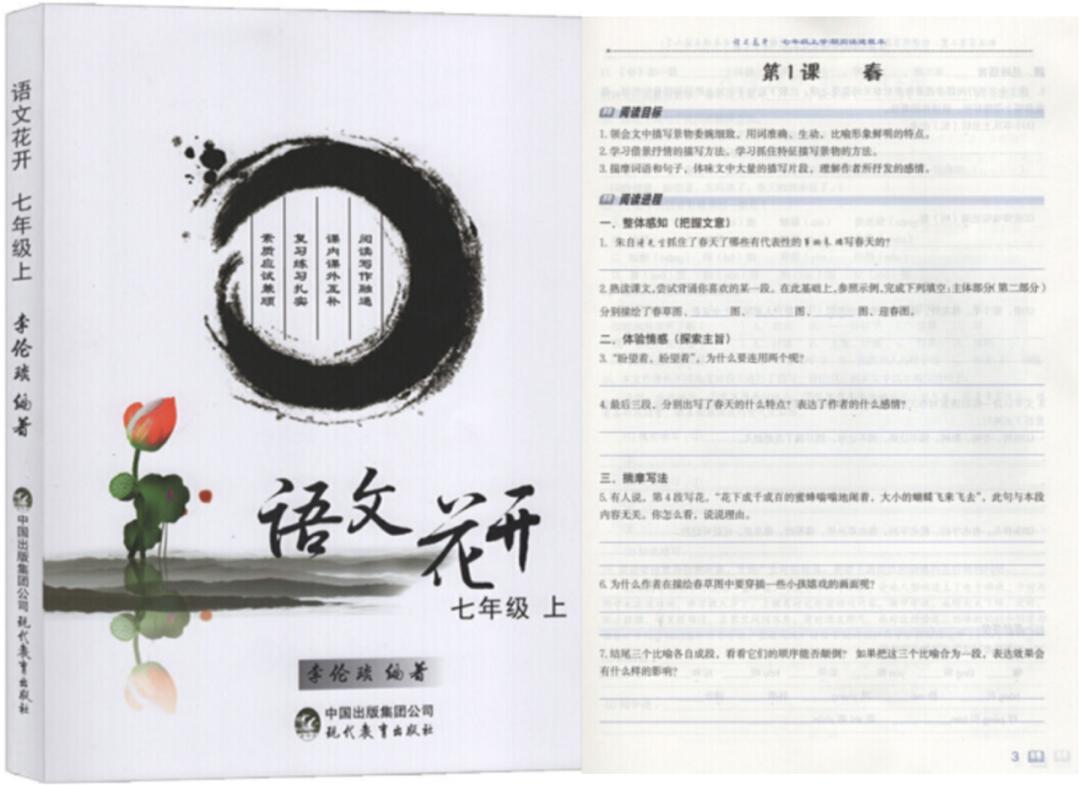 语文花开 七年级上
李伦琰 编著
中国出版集团公司
现代教育出版社
阅读写作融通
课内课外互补
复习练习扎实
素质应试兼顾
语文花开
七年级 上
李伦琰 编著
中国出版集团公司
现代教育出版社
第1课 春
阅读目标
1.领会文中描写景物委婉细致,用词准确、生动,比喻形象鲜明的特点。
2.学习借景抒情的描写方法,学习抓住特征描写景物的方法。
3.揣摩词语和句子,体味文中大量的描写片段,理解作者所抒发的感情。
阅读进程
一、整体感知(把握文意)
1.朱自清先生抓住了春天了哪些有代表性的事物来描写春天的?
2.熟读课文,尝试背诵你喜欢的某一段。在此基础上,参照示例,完成下列填空:主体部分(第二部分)
分别描绘了春草图、 图、 图、 图、迎春图。
二、体验情感(探索主旨)
3.“盼望着,盼望着”,为什么要连用两个呢?
4.最后三段,分别出写了春天的什么特点?表达了作者的什么感情?
三、揣摩写法
5.有人说,第4段写花,“花下成千成百的蜜蜂嗡嗡地闹着,大小的蝴蝶飞来飞去”,此句与本段
内容无关。你怎么看,说说理由。
6.为什么作者在描绘春草图中要穿插一些小孩嬉戏的画面呢?
7.结尾三个比喻各自成段,看看它们的顺序能否颠倒?如果把这三个比喻合为一段,表达效果会
有什么样的影响?
3